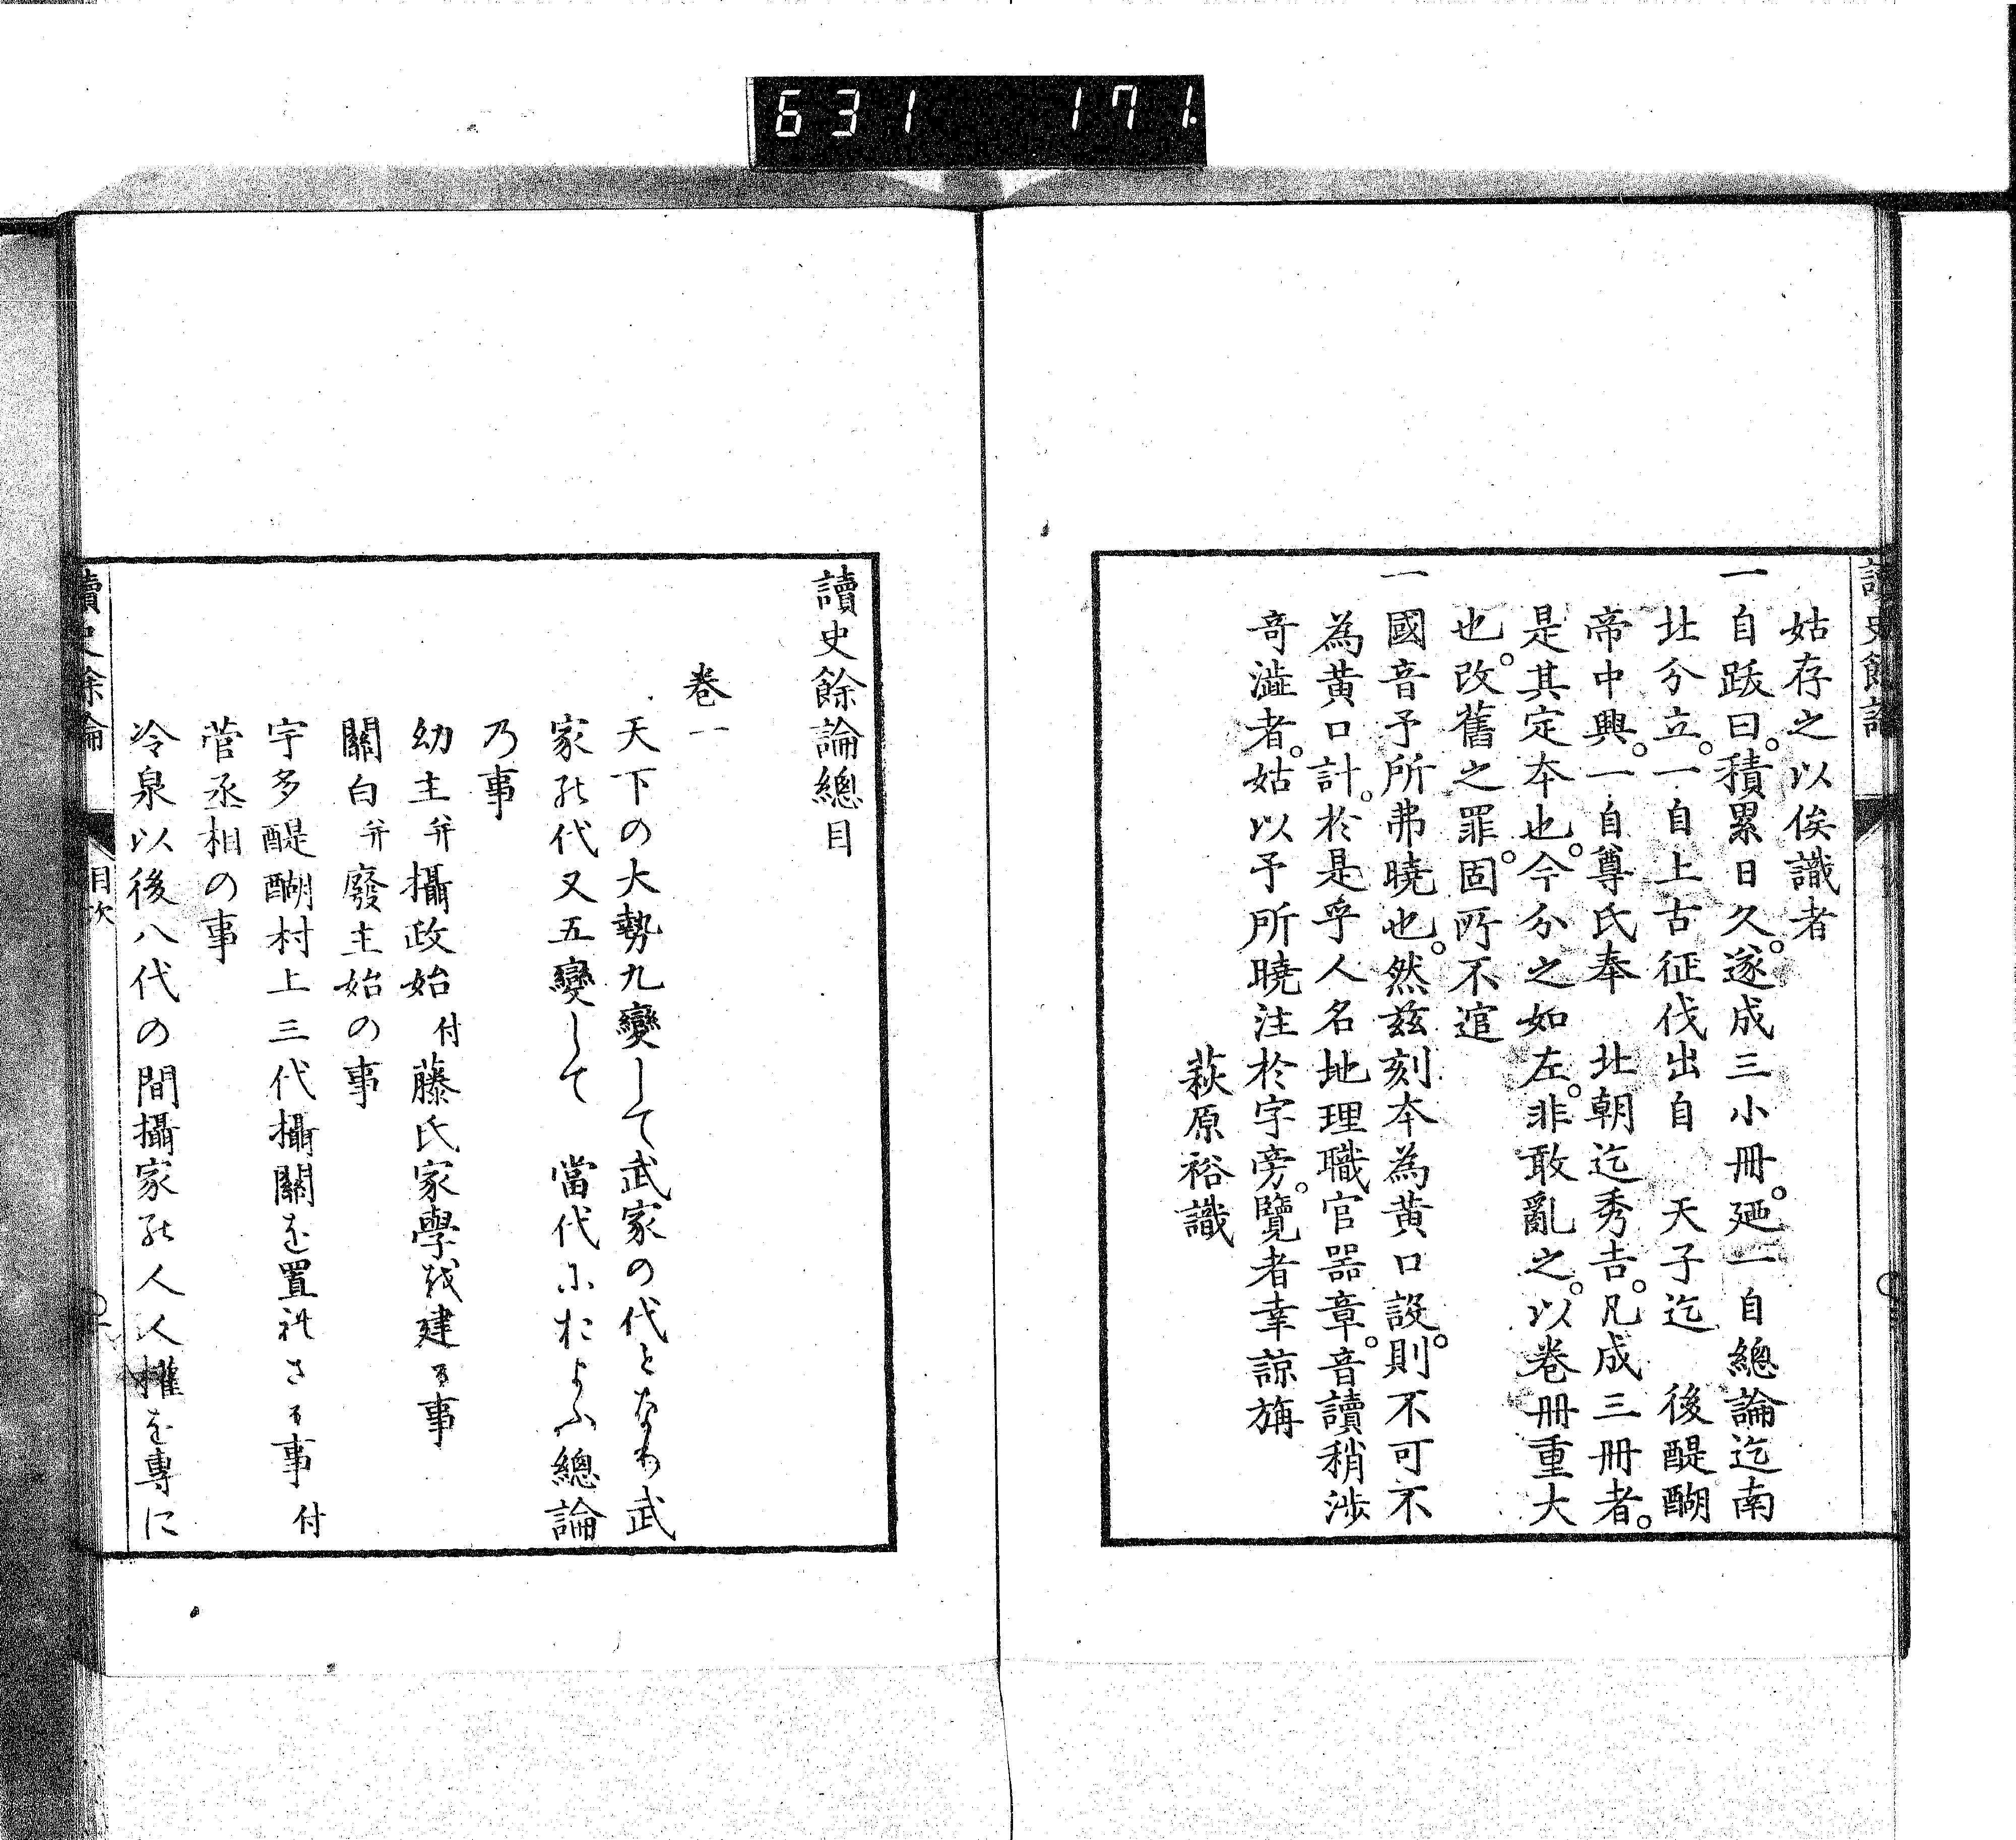 631 171.
讀史餘論
姑存之以俟識者
一自跋曰。積累日久。遂成三小冊。廼一自總論迄南
北分立。一自上古征伐出自　天子迄　後醍醐
帝中興。一自尊氏奉　北朝迄秀吉。凡成三冊者。
是其定本也。今分之如左。非敢亂之。以卷冊重大
也。改舊之罪。固所不逭
一國音予所弗曉也。然茲刻本為黃口設。則不可不
為黃口計。於是乎人名地理職官器章。音讀稍涉
奇澁者。姑以予所曉注於字旁。覽者幸諒旃
萩原裕識
讀史餘論總目
卷一
天下の大勢九變して武家の代となり武
家の代又五變して　當代におよふ總論
乃事
幼主并攝政始付藤氏家學を建る事
關白并廢主始の事
宇多醍醐村上三代攝關を置れさる事付
菅丞相の事
冷泉以後八代の間攝家の人人權を專に
讀史餘論
目次